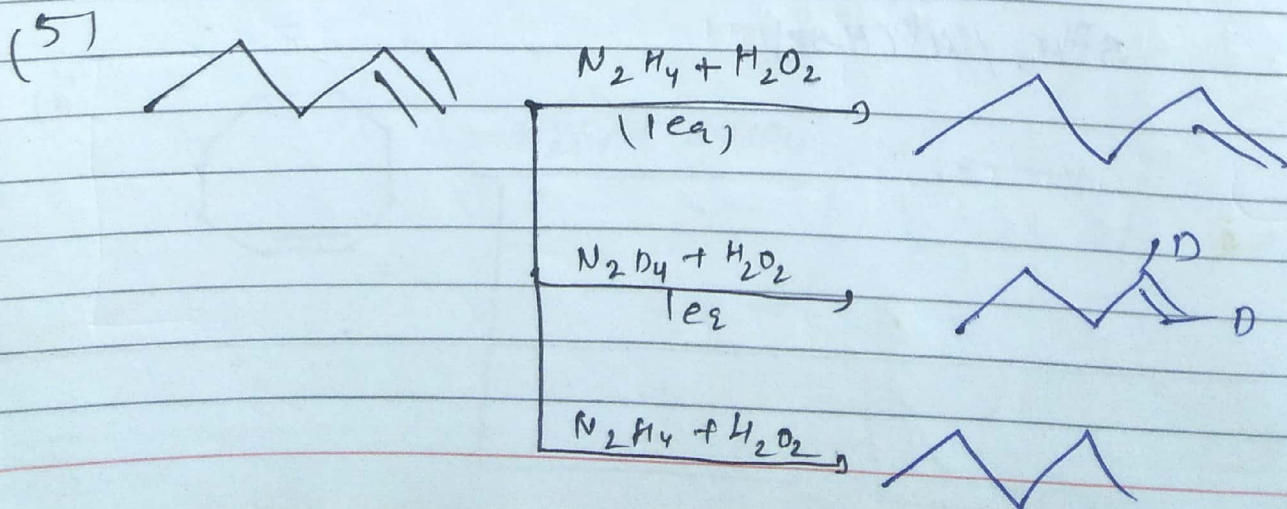 (5)
N₂H₄ + H₂O₂
(1eq)
N₂D₄ + H₂O₂
1eq
D
D
N₂H₄ + H₂O₂